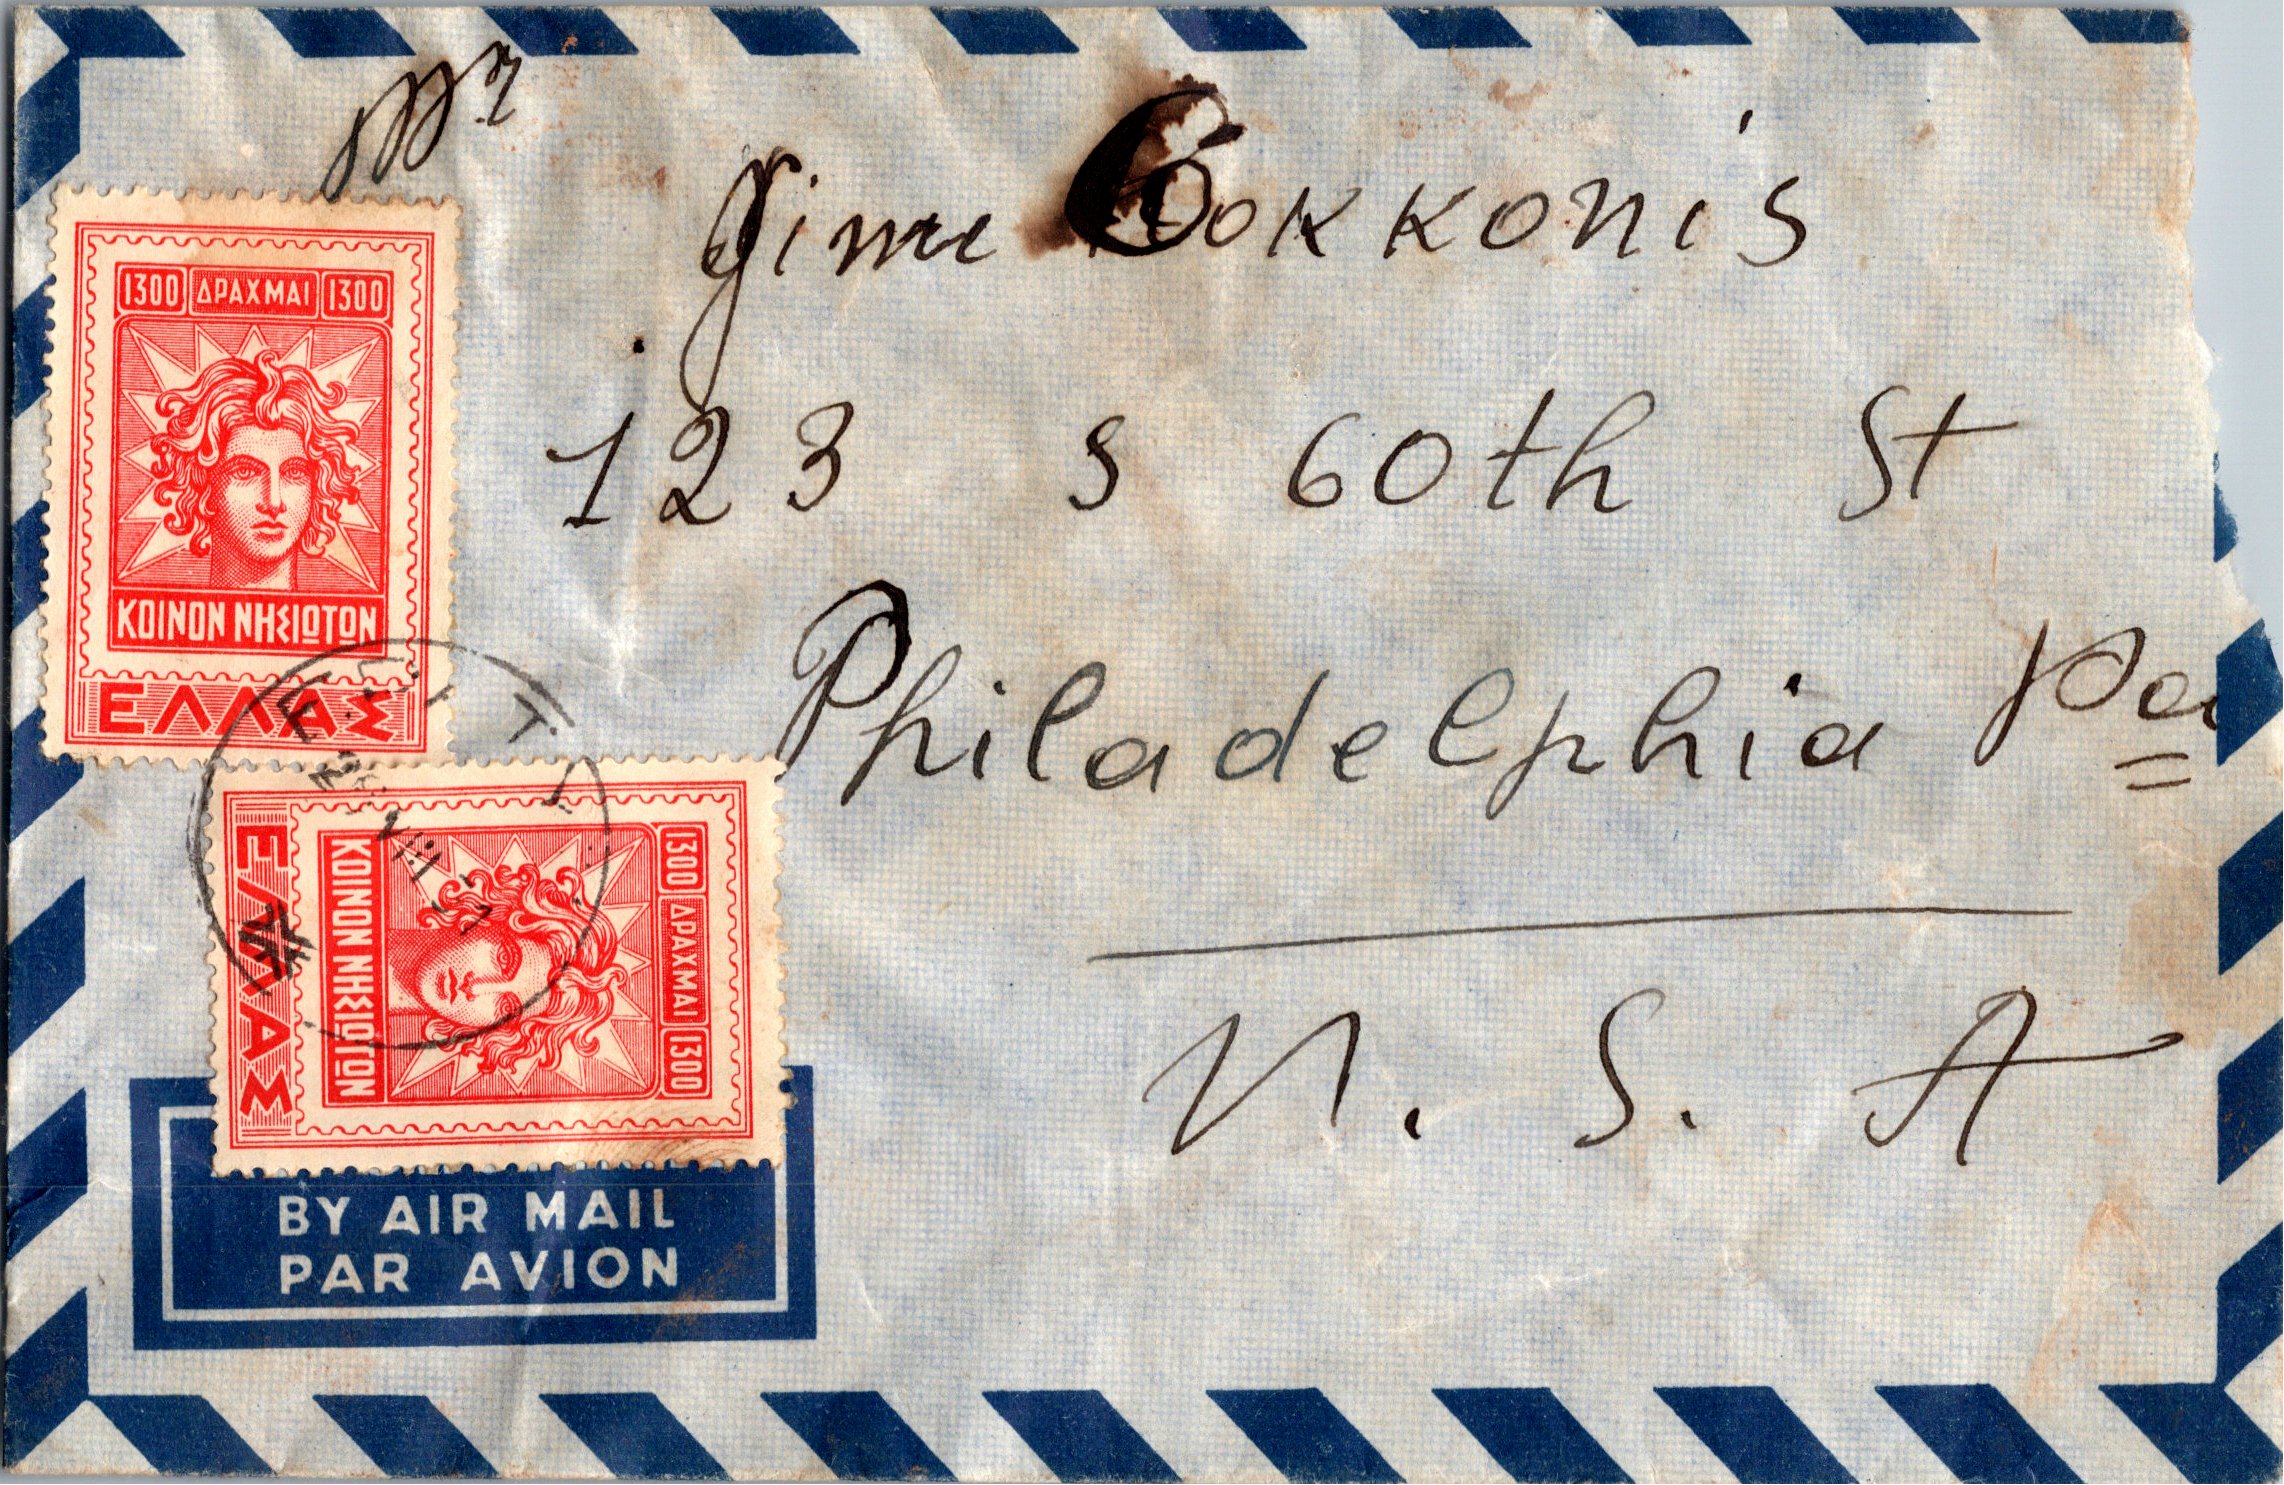 Mr
Jime Cokkonis
123 S 60th St
Philadelphia Pa
U.S.A
1300 ΔΡΑΧΜΑΙ 1300
ΚΟΙΝΟΝ ΝΗΣΙΩΤΩΝ
ΕΛΛΑΣ
1300 ΔΡΑΧΜΑΙ 1300
ΚΟΙΝΟΝ ΝΗΣΙΩΤΩΝ
ΕΛΛΑΣ
BY AIR MAIL
PAR AVION